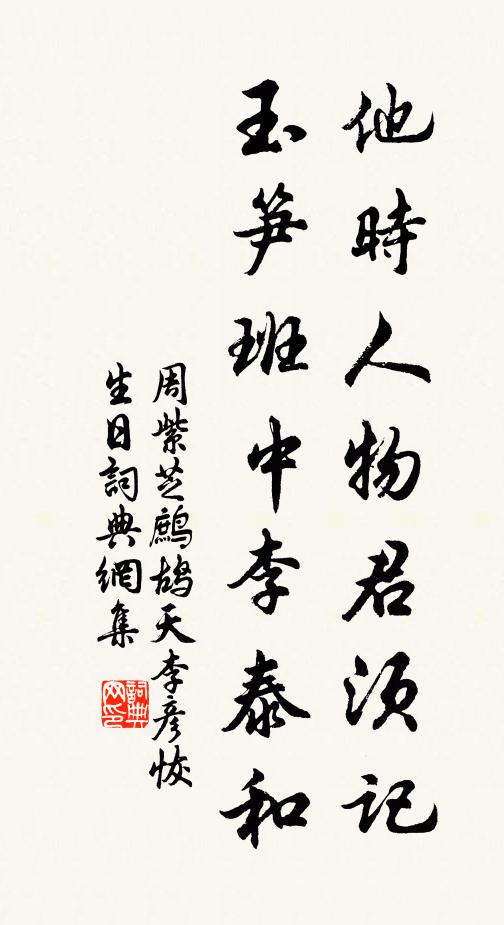 他時人物君須記
玉笋班中李泰和
周紫芝鷓鴣天李彦恢
生日詞典網集
詞典网印